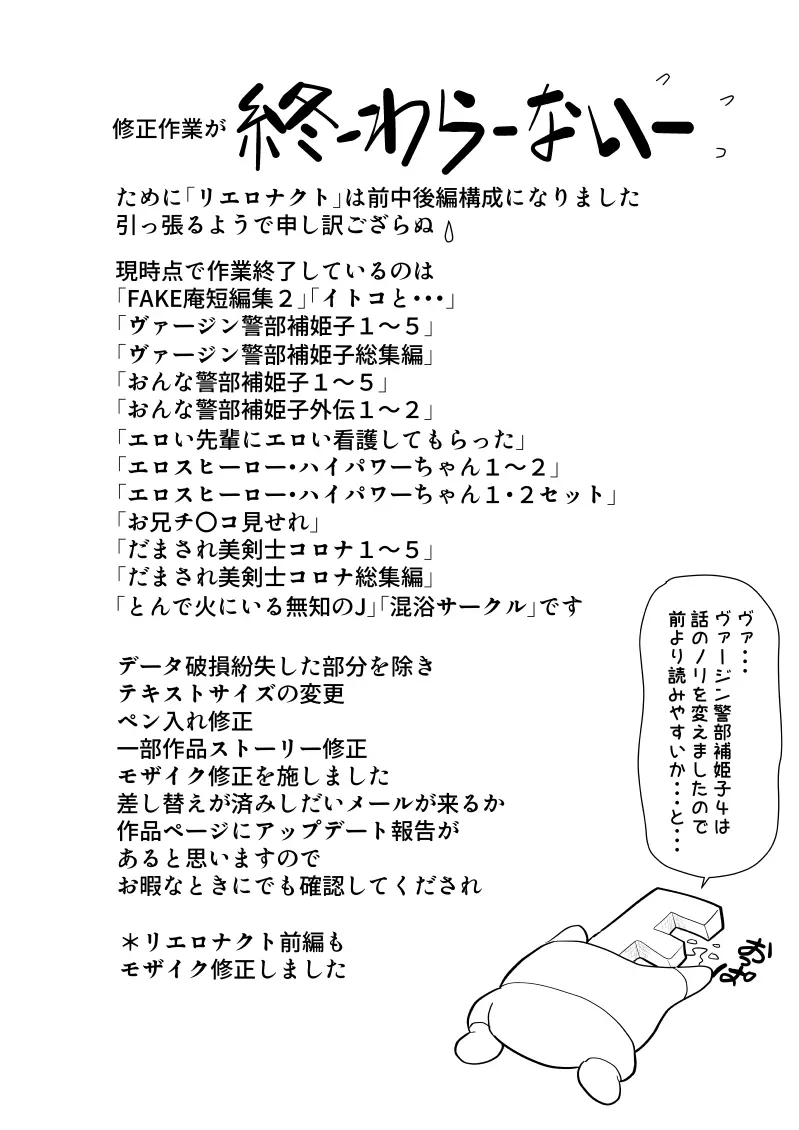 修正作業が 終ーわらーないー
ために「リエロナクト」は前中後編構成になりました
引っ張るようで申し訳ござらぬ
現時点で作業終了しているのは
「FAKE庵短編集２」「イトコと・・・」
「ヴァージン警部補姫子１～５」
「ヴァージン警部補姫子総集編」
「おんな警部補姫子１～５」
「おんな警部補姫子外伝１～２」
「エロい先輩にエロい看護してもらった」
「エロスヒーロー・ハイパワーちゃん１～２」
「エロスヒーロー・ハイパワーちゃん１・２セット」
「お兄チ〇コ見せれ」
「だまされ美剣士コロナ１～５」
「だまされ美剣士コロナ総集編」
「とんで火にいる無知のJ」「混浴サークル」です
データ破損紛失した部分を除き
テキストサイズの変更
ペン入れ修正
一部作品ストーリー修正
モザイク修正を施しました
差し替えが済みしだいメールが来るか
作品ページにアップデート報告が
あると思いますので
お暇なときにでも確認してくだされ
＊リエロナクト前編も
モザイク修正しました
ヴァ・・・
ヴァージン警部補姫子４は
話のノリを変えましたので
前より読みやすいか・・・と・・・
おっぱ